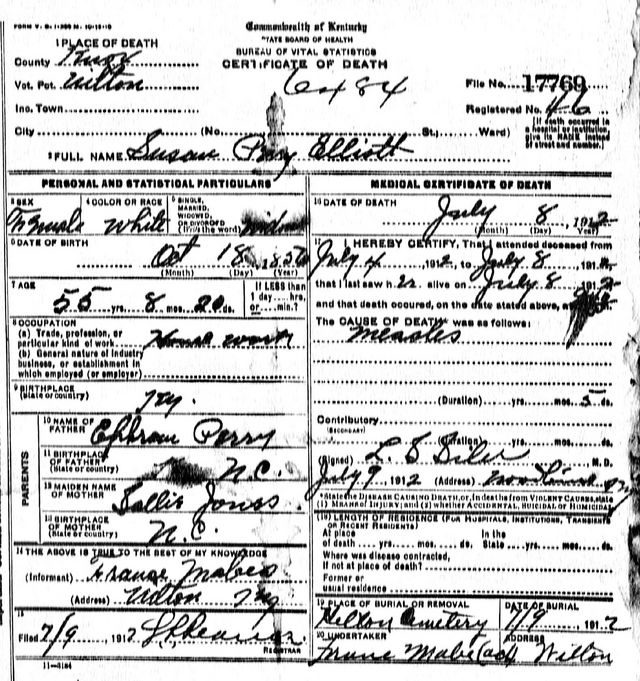 FORM V. S. 1-
Commonwealth of Kentucky
STATE BOARD OF HEALTH
BUREAU OF VITAL STATISTICS
CERTIFICATE OF DEATH
1 PLACE OF DEATH
County Knox
Vot. Pct. Wilton
Inc. Town
City (No. St.; Ward)
6484
File No. 17769
Registered No. 46
[If death occurred in a hospital or institution, give its NAME instead of street and number.]
2 FULL NAME Susan Perry Elliott
PERSONAL AND STATISTICAL PARTICULARS
3 SEX
Female
4 COLOR OR RACE
White
5 SINGLE, MARRIED, WIDOWED, OR DIVORCED (Write the word) Widow
6 DATE OF BIRTH
Oct 18 1856
(Month) (Day) (Year)
7 AGE
55 yrs. 8 mos. 20 ds.
If LESS than 1 day....hrs. or....min.?
8 OCCUPATION
(a) Trade, profession, or particular kind of work House work
(b) General nature of industry business, or establishment in which employed (or employer)
9 BIRTHPLACE
(State or country) Ky.
PARENTS
10 NAME OF FATHER Ephram Perry
11 BIRTHPLACE OF FATHER (State or country) N.C.
12 MAIDEN NAME OF MOTHER Sallie Jones
13 BIRTHPLACE OF MOTHER (State or country) N.C.
14 THE ABOVE IS TRUE TO THE BEST OF MY KNOWLEDGE
(Informant) Mabes
(Address) Wilton Ky
15
Filed 7/9 1912
REGISTRAR
11-3184
MEDICAL CERTIFICATE OF DEATH
16 DATE OF DEATH
July 8 1912
(Month) (Day) (Year)
17 I HEREBY CERTIFY, That I attended deceased from
July 4 1912, to July 8 1912
that I last saw h er alive on July 8 1912
and that death occured, on the date stated above, at
The CAUSE OF DEATH was as follows:
Measles
(Duration) yrs. mos. 5 ds.
Contributory
(SECONDARY)
(Duration) yrs. mos. ds.
(Signed) M.D.
July 9 1912 (Address)
*State the DISEASE CAUSING DEATH, or, in deaths from VIOLENT CAUSES, state (1) MEANS OF INJURY; and (2) whether ACCIDENTAL, SUICIDAL or HOMICIDAL
18 LENGTH OF RESIDENCE (FOR HOSPITALS, INSTITUTIONS, TRANSIENTS OR RECENT RESIDENTS)
At place of death yrs. mos. ds. In the State yrs. mos. ds.
Where was disease contracted,
If not at place of death?
Former or
usual residence
19 PLACE OF BURIAL OR REMOVAL
Cemetery
DATE OF BURIAL
7/9 1912
20 UNDERTAKER
ADDRESS
Wilton